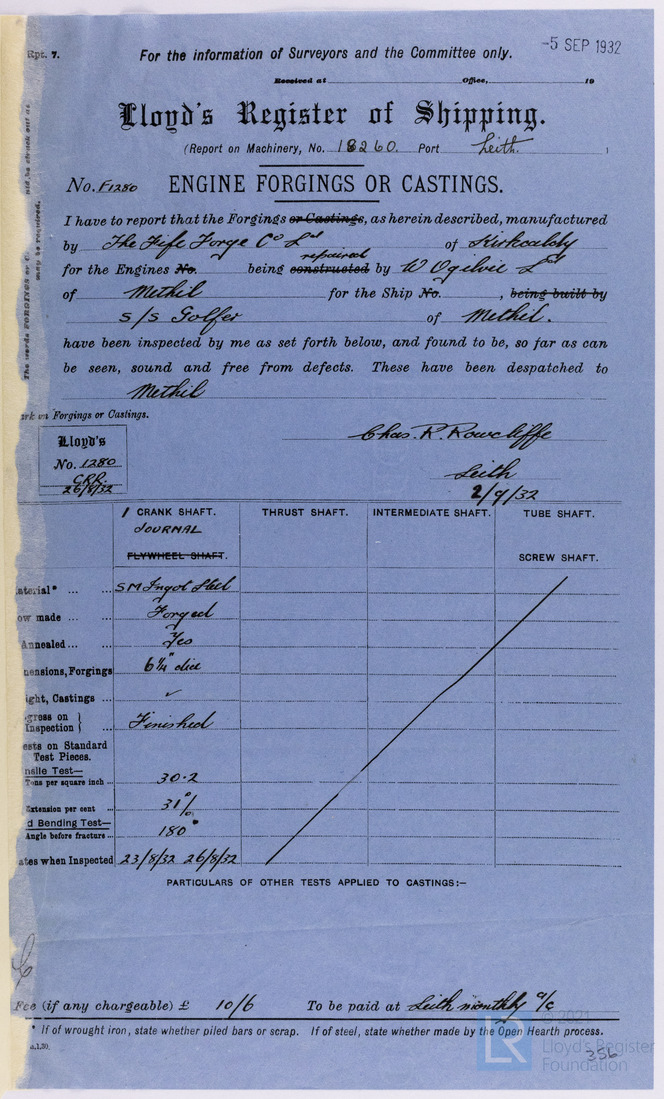 Rpt. 7.
-5 SEP 1932
For the information of Surveyors and the Committee only.
Received at Office, 19
Lloyd's Register of Shipping.
(Report on Machinery, No. 18260. Port Leith.
No. F1280 ENGINE FORGINGS OR CASTINGS.
I have to report that the Forgings or Castings, as herein described, manufactured
by The Fife Forge Co Ld of Kirkcaldy
repaired
for the Engines No. being constructed by W Ogilvie Ld
of Methil for the Ship No. , being built by
S/S Golfer of Methil.
have been inspected by me as set forth below, and found to be, so far as can
be seen, sound and free from defects. These have been despatched to
Methil
The words FORGINGS or
may be required.
ark on Forgings or Castings.
Lloyd's
No. 1280
CRR.
26/8/32
Chas. R. Rowcliffe
Leith
2/9/32
1 CRANK SHAFT. THRUST SHAFT. INTERMEDIATE SHAFT. TUBE SHAFT.
JOURNAL
FLYWHEEL SHAFT. SCREW SHAFT.
aterial* ... ... S M Ingot Steel
ow made ... ... Forged
Annealed ... ... Yes
ensions, Forgings 6¼" dia
ight, Castings ... ✓
gress on
Inspection } ... Finished
ests on Standard
Test Pieces.
nsile Test—
Tons per square inch ... 30.2
Extension per cent ... 31%
d Bending Test—
Angle before fracture ... 180°
ates when Inspected 23/8/32 26/8/32
PARTICULARS OF OTHER TESTS APPLIED TO CASTINGS:—
Fee (if any chargeable) £ 10/6 To be paid at Leith monthly a/c
* If of wrought iron, state whether piled bars or scrap. If of steel, state whether made by the Open Hearth process.
.1.30.
© 2021
LR
Lloyd's Register
Foundation
356